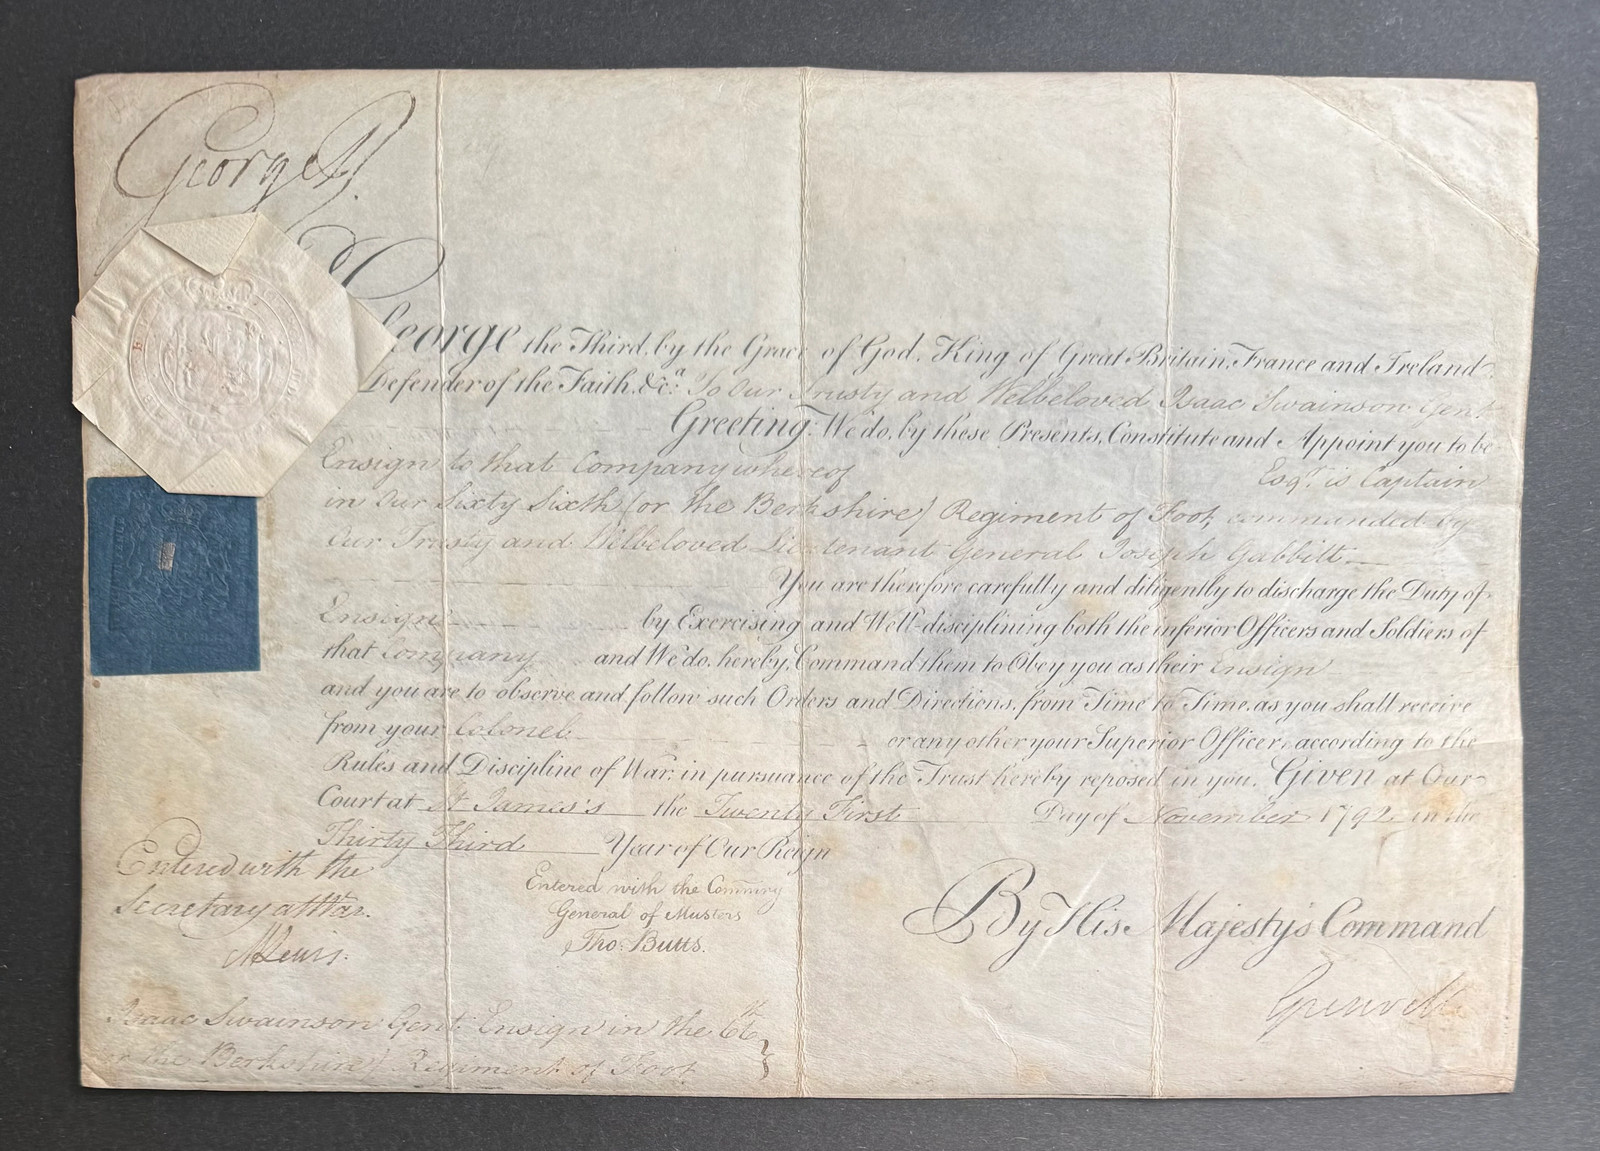 George R
George the Third, by the Grace of God, King of Great Britain, France and Ireland,
Defender of the Faith, &c.a To Our Trusty and Welbeloved Isaac Swainson Gent
Greeting: We do, by these Presents, Constitute and Appoint you to be
Ensign to that Company whereof Esqr. is Captain
in Our Sixty Sixth (or the Berkshire) Regiment of Foot, commanded by
Our Trusty and Welbeloved Lieutenant General Joseph Gabbitt
You are therefore carefully and diligently to discharge the Duty of
Ensign by Exercising and Well-disciplining both the inferior Officers and Soldiers of
that Company and We do, hereby, Command them to Obey you as their Ensign
and you are to observe and follow such Orders and Directions, from Time to Time, as you shall receive
from your Colonel or any other your Superior Officer, according to the
Rules and Discipline of War, in pursuance of the Trust hereby reposed in you. Given at Our
Court at St. James's the Twenty First Day of November 1792 in the
Thirty Third Year of Our Reign
Entered with the
Secretary at War.
MLewis.
Entered with the Commry
General of Musters
Tho: Butts.
By His Majesty's Command
Grenville
Isaac Swainson Gent. Ensign in the 66th
or the Berkshire) Regiment of Foot }